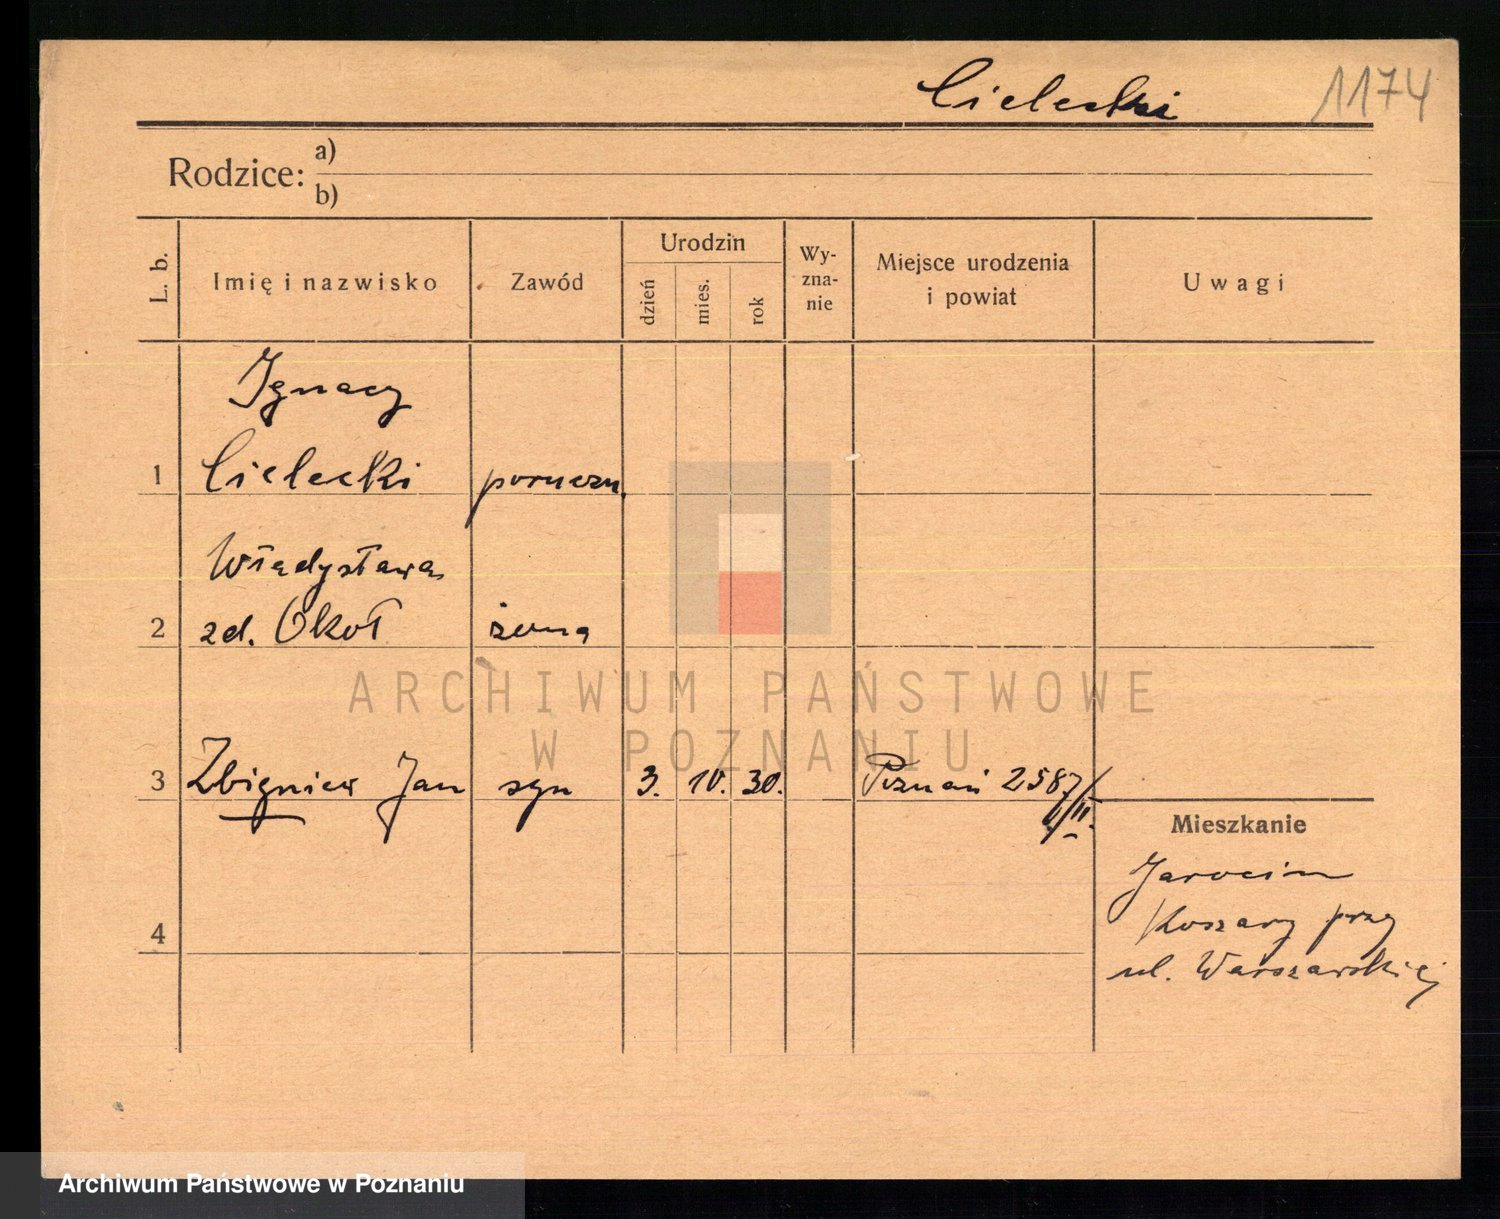 Cielecki 1174
Rodzice: a)
b)
L. b. Imię i nazwisko Zawód Urodzin dzień mies. rok Wy-
zna-
nie Miejsce urodzenia
i powiat Uwagi
Ignacy
1 Cielecki poruczn.
Władysława
2 zd. Okoł żona
ARCHIWUM PAŃSTWOWE
W POZNANIU
3 Zbigniew Jan syn 3. 10. 30. Poznań 2587/
II.
Mieszkanie
Jarocin
Koszary przy
ul. Warszawskiej
4
Archiwum Państwowe w Poznaniu